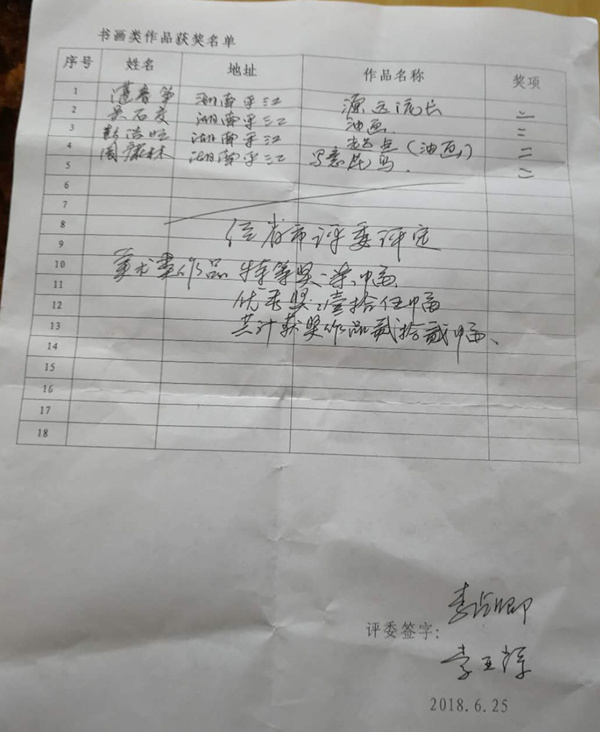 书画类作品获奖名单
序号 姓名 地址 作品名称 奖项
1 湖南平江 源远流长 二
2 吴石友 湖南平江 油画 二
3 湖南平江 (油画) 二
4 湖南平江 写意花鸟 二
5
6
7
8 经省市评委评定
9
10 美术类作品 特等奖:柒幅
11 优秀奖:壹拾伍幅
12
13 共计获奖作品贰拾贰幅、
14
15
16
17
18
评委签字:
李
2018.6.25